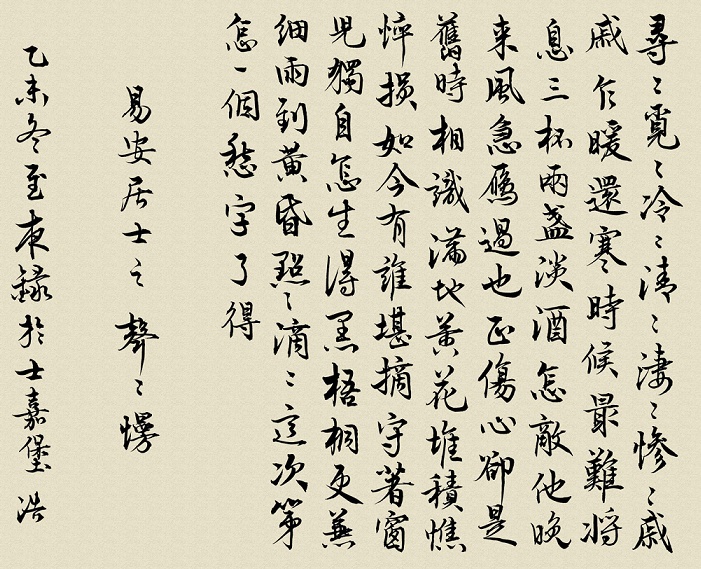 尋〻覓〻冷〻清〻淒〻慘〻戚
戚乍暖還寒時候最難將
息三杯兩盞淡酒怎敵他晚
来風急鴈過也正傷心卻是
舊時相識滿地黃花堆積憔
悴损如今有誰堪摘守著窗
兒獨自怎生得黑梧桐更兼
細雨到黃昏點〻滴〻這次第
怎一個愁字了得
易安居士之聲〻慢
乙未冬至夜録於士嘉堡浩